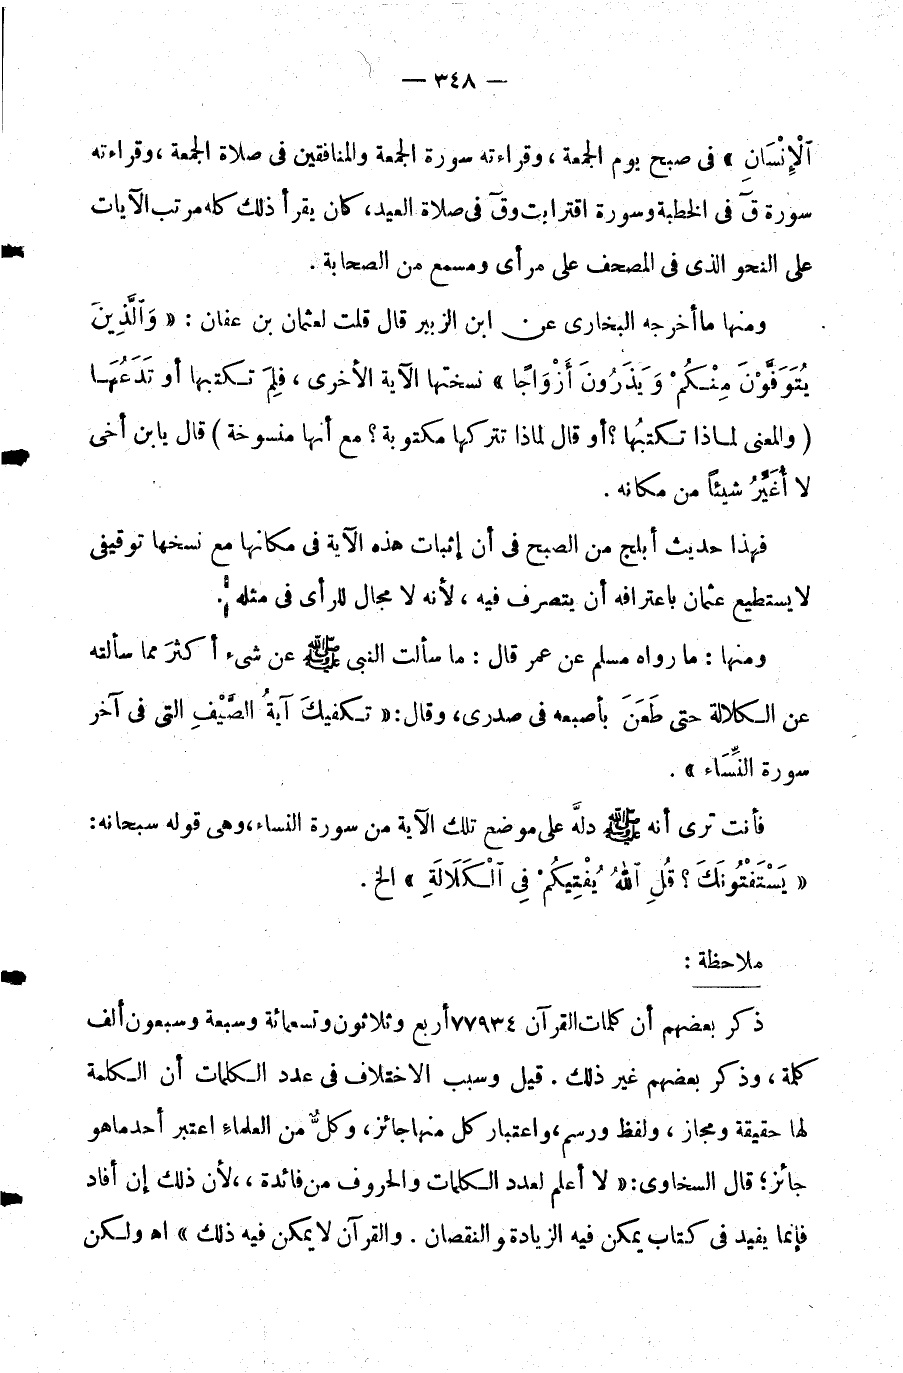 — ٣٤٨ —
ٱلْإِنْسَانِ » فى صبح يوم الجمعة ، وقراءته سورة الجمعة والمنافقين فى صلاة الجمعة ، وقراءته
سورة قٓ فى الخطبة وسورة اقتربت وقٓ فى صلاة العيد، كان يقرأ ذلك كله مرتب الآيات
على النحو الذى فى المصحف على مرأى ومسمع من الصحابة .
ومنها ما أخرجه البخارى عن ابن الزبير قال قلت لعثمان بن عفان : « وَٱلَّذِينَ
يُتَوَفَّوْنَ مِنْكُمْ وَيَذَرُونَ أَزْوَاجًا » نسختها الآية الأخرى ، فلِمَ تكتبها أو تَدَعُهَا
( والمعنى لماذا تكتبُها ؟ أو قال لماذا تتركها مكتوبة ؟ مع أنها منسوخة ) قال يابن أخى
لا أُغَيِّرُ شيئاً من مكانه .
فهذا حديث أبلج من الصبح فى أن إثبات هذه الآية فى مكانها مع نسخها توقيفى
لا يستطيع عثمان باعترافه أن يتصرف فيه ، لأنه لا مجال للرأى فى مثله .
ومنها : ما رواه مسلم عن عمر قال : ما سألت النبى ﷺ عن شىء أكثرَ مما سألته
عن الكلالة حتى طَعَنَ بأصبعه فى صدرى، وقال: « تكفيكَ آيةُ الصَّيْفِ التى فى آخر
سورة النِّسَاء » .
فأنت ترى أنه ﷺ دلَّه على موضع تلك الآية من سورة النساء، وهى قوله سبحانه:
« يَسْتَفْتُونَكَ ؟ قُلِ ٱللهُ يُفْتِيكُمْ فِى ٱلْكَلَالَةِ » الخ .
ملاحظة :
ذكر بعضهم أن كلمات القرآن ٧٧٩٣٤ أربع وثلاثون وتسعمائة وسبعة وسبعون ألف
كلمة ، وذكر بعضهم غير ذلك . قيل وسبب الاختلاف فى عدد الكلمات أن الكلمة
لها حقيقة ومجاز ، ولفظ ورسم، واعتبار كل منها جائز، وكلٌّ من العلماء اعتبر أحد ما هو
جائز؛ قال السخاوى: « لا أعلم لعدد الكلمات والحروف من فائدة ،، لأن ذلك إن أفاد
فإنما يفيد فى كتاب يمكن فيه الزيادة والنقصان . والقرآن لا يمكن فيه ذلك » اه ولكن